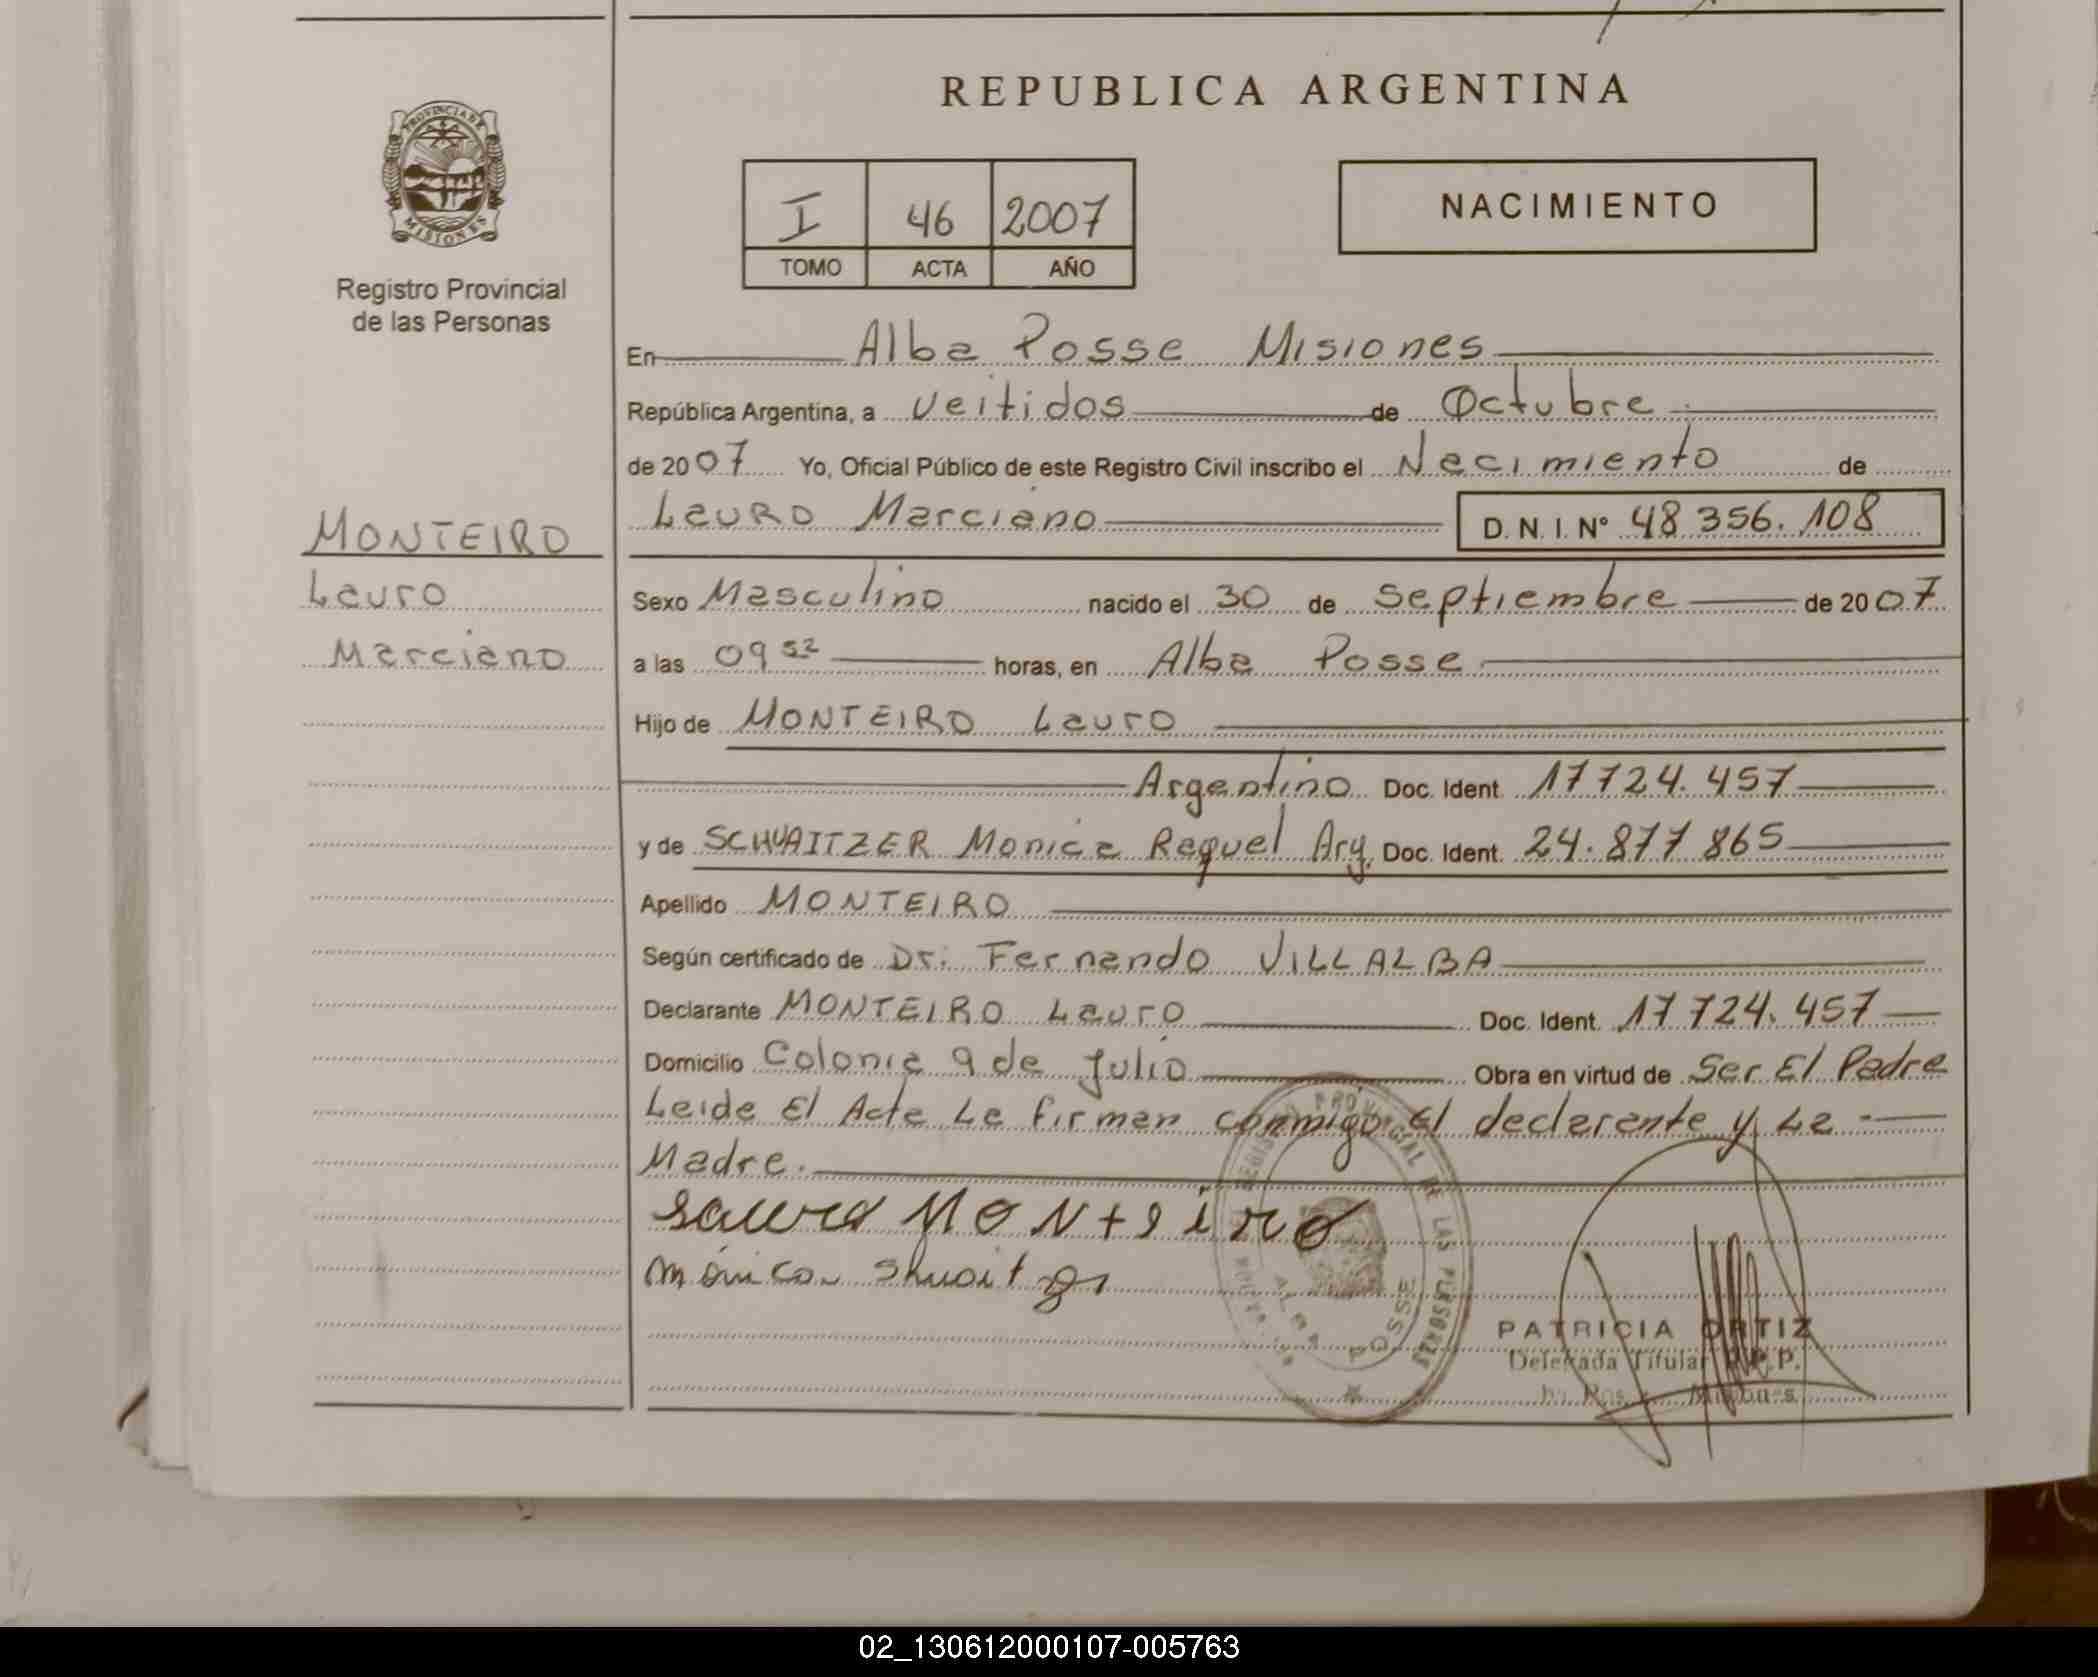 REPUBLICA ARGENTINA
PROVINCIA DE
MISIONES
Registro Provincial
de las Personas
I 46 2007
TOMO ACTA AÑO
NACIMIENTO
En Alba Posse Misiones
República Argentina, a veitidos de Octubre
de 2007 Yo, Oficial Público de este Registro Civil inscribo el Nacimiento de
Lauro Marciano D. N. I. Nº 48 356. 108
MONTEIRO
Lauro
Marciano
Sexo Masculino nacido el 30 de septiembre de 2007
a las 09 52 horas, en Alba Posse
Hijo de MONTEIRO Lauro
Argentino Doc. Ident. 17724.457
y de SCHUAITZER Monica Raquel Arg. Doc. Ident. 24.877 865
Apellido MONTEIRO
Según certificado de Dr. Fernando VILLALBA
Declarante MONTEIRO Lauro Doc. Ident. 17 724. 457
Domicilio Colonia 9 de Julio Obra en virtud de Ser El Padre
Leida El Acta La firman conmigo El declarante y La
Madre.
Lauro MONteiro
mónica Shuaitzer
REGISTRO PROVINCIAL DE LAS PERSONAS
ALBA POSSE
PATRICIA ORTIZ
Delegada Titular R.P.P.
Misiones
02_130612000107-005763